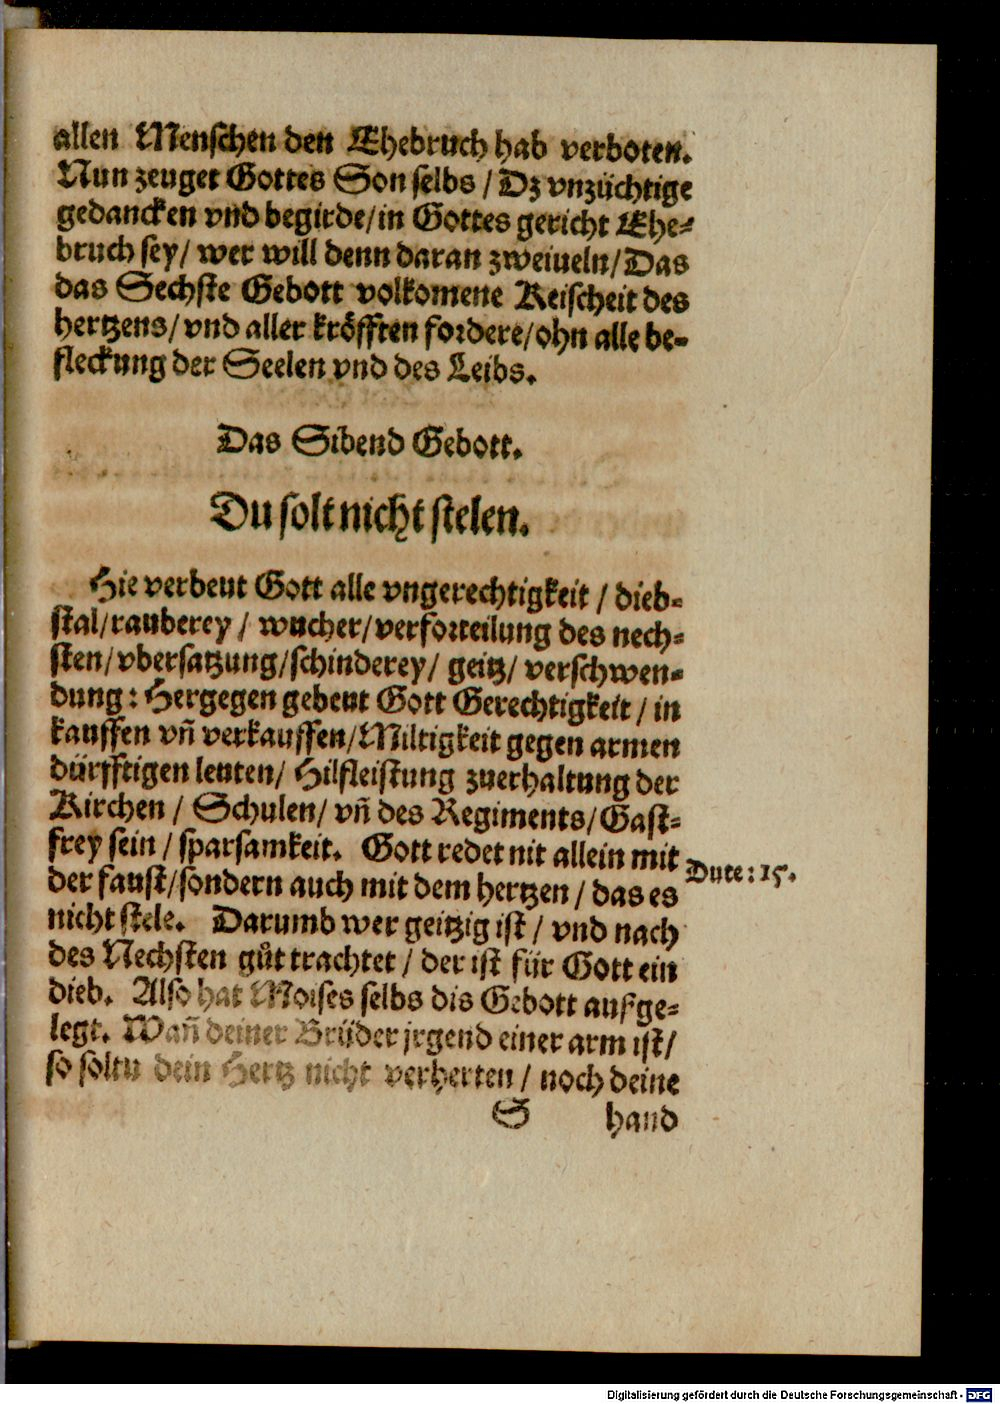 allen Menschen den Ehebruch hab verboten.
Nun zeuget Gottes Son selbs / Dz vnzüchtige
gedancken vnd begirde / in Gottes gericht Ehe-
bruch sey / wer will denn daran zweiueln / Das
das Sechste Gebott volkomene Reischeit des
hertzens / vnd aller kröfften fordere / ohn alle be-
fleckung der Seelen vnd des Leibs.
Das Sibend Gebott.
Du solt nicht stelen.
Hie verbeut Gott alle vngerechtigkeit / dieb-
stal / rauberey / wucher / verforteilung des nech-
sten / vbersatzung / schinderey / geitz / verschwen-
dung: Hergegen gebeut Gott Gerechtigkeit / in
kauffen vñ verkauffen / Miltigkeit gegen armen
dürfftigen leuten / Hilfleistung zuerhaltung der
Kirchen / Schulen / vñ des Regiments / Gast-
frey sein / sparsamkeit. Gott redet nit allein mit
der faust / sondern auch mit dem hertzen / das es
nicht stele. Darumb wer geitzig ist / vnd nach
des Nechsten gůt trachtet / der ist für Gott ein
dieb. Also hat Moises selbs dis Gebott aufge-
legt. Wañ deiner Brüder jrgend einer arm ist /
so soltu dein Hertz nicht verherten / noch deine
S hand
Dute: 15.
Digitalisierung gefördert durch die Deutsche Forschungsgemeinschaft - DFG